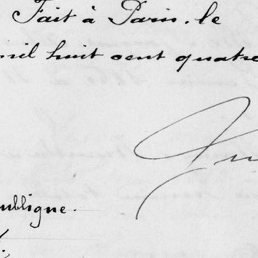 Fait à Paris, le
mil huit cent quatre
publique.